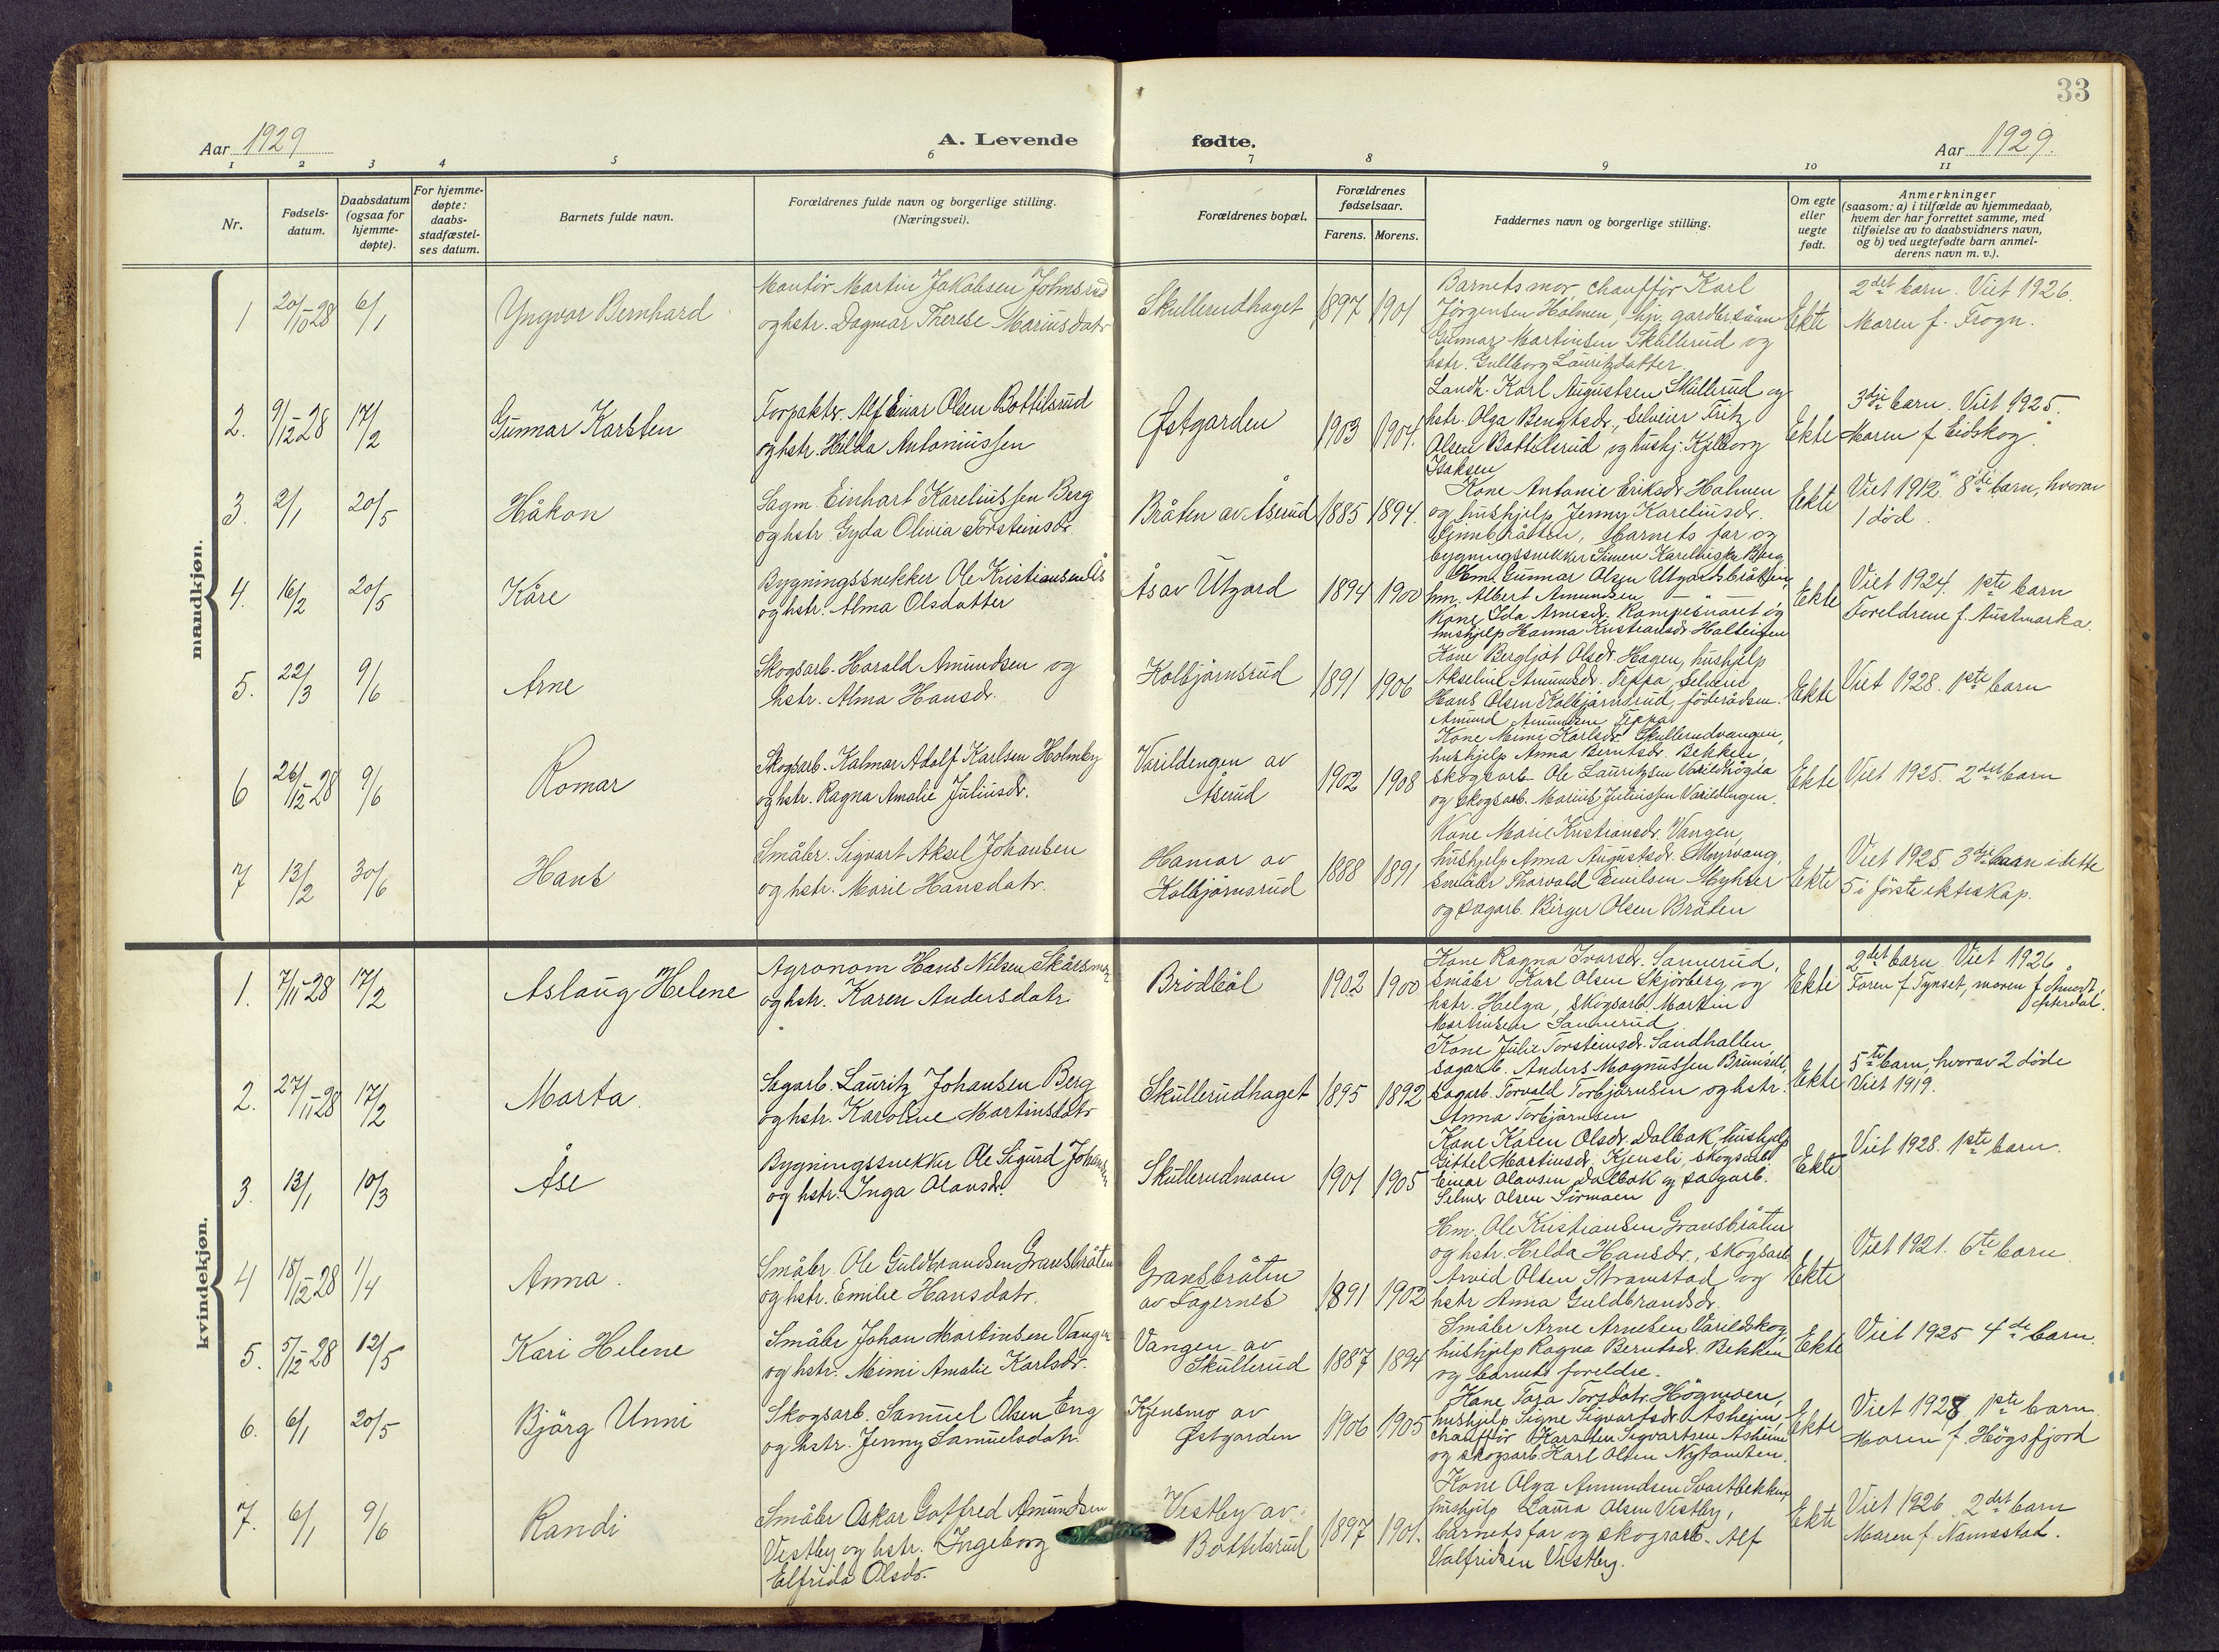 33
Aar 1929
A. Levende fødte.
Aar 1929.
1 2 3 4 5 6 7 8 9 10 11
Nr.
Fødsels-
datum.
Daabsdatum
(ogsaa for
hjemme-
døpte).
For hjemme-
døpte:
daabs-
stadfæstel-
ses datum.
Barnets fulde navn.
Forældrenes fulde navn og borgerlige stilling.
(Næringsvei).
Forældrenes bopæl.
Forældrenes
fødselsaar.
Farens. Morens.
Faddernes navn og borgerlige stilling.
Om egte
eller
uegte
født.
Anmerkninger
(saasom: a) i tilfælde av hjemmedaab,
hvem der har forrettet samme, med
tilføielse av to daabsvidners navn,
og b) ved uegtefødte barn anmel-
derens navn m. v.).
mandkjøn.
1 20/10-28 6/1 Yngvar Bernhard
Montör Martin Jakobsen Johnsrud
og hstr. Dagmar Therese Mariusdatr
Skullerudhaget 1897 1901
Barnets mor, chaufför Karl
Jörgensen Holmen, hj. gardbr.sönn
Gunnar Martinsen Skullerud og
hstr. Gullborg Lauritzdatter.
Ekte
2det barn. Viet 1926.
Moren f. Frogn.
2. 9/12-28 17/2 Gunnar Karsten
Forpakter Alf Einar Olsen Bottilsrud
og hstr. Hilda Antoniussen
Østgarden 1903 1904.
Landh. Karl Augustsen Skullerud og
hstr. Olga Bengtsdr., selveier Fritz
Olsen Bottilsrud og hushj. Kjellborg
Isaksen
Ekte
3dje barn. Viet 1925.
Moren f Eidskog.
3. 2/1 20/5 Håkon
Sagm. Einhart Kareliussen Berg
og hstr. Gyda Olivia Torsteinsdr.
Bråten av Åserud 1885 1894.
Kone Antonie Eriksdr. Holmen
og hushjelp Jenny Kareliusdr.
Finnbråten, barnets far og
bygningssnekker Simen Kareliussen Berg
Ekte
Viet 1912. 8de barn, hvorav
1 död.
4. 16/2 20/5 Kåre
Bygningssnekker Ole Kristiansen Ås
og hstr. Alma Olsdatter
Ås av Utgard 1894 1900
Hm. Gunnar Olsen Utgardsbråten,
hm. Albert Amundsen
Kone Ida Arnesdr. Kampesvæet og
hushjelp Hanna Kristiansdr. Holteigen
Ekte
Viet 1924. 1ste barn
Foreldrene f. Austmarka.
5. 22/3 9/6 Arne
Skogsarb. Harald Amundsen og
hstr. Alma Hansdr.
Kolbjörnsrud 1891 1906
Kone Bergljot Olsdr. Hagen, hushjelp
Akseline Amundsdr. Teppa, selveier
Hans Olsen Kolbjörnsrud, föderådsm.
Amund Amundsen Teppa
Ekte
Viet 1928. 1ste barn
6 26/12-28 9/6 Romar
Skogsarb. Kalmar Adolf Karlsen Holmby
og hstr. Ragna Amalie Juliusdr.
Varildengen av
Åserud
1902 1908
Kone Mimi Karlsdr. Skullerudvangen,
hushjelp Anna Berntsdr. Bekken,
skogsarb. Ole Lauritzsen Varildhögda
og skogsarb. Marius Juliussen Varildengen.
Ekte
Viet 1925. 2det barn
7 13/2 30/6 Hans
Småbr. Sigvart Aksel Johansen
og hstr. Marie Hansdatr.
Hamar av
Kolbjörnsrud
1888 1891
Kone Marie Kristiansdr. Vangen,
hushjelp Anna Augustsdr. Myrvang,
småbr. Thorvald Emilsen Myhrer
og sagarb. Birger Olsen Bråten
Ekte
Viet 1925. 3dje barn i dette
5 i förste ekteskap.
kvindekjøn.
1. 7/11-28 17/2 Aslaug Helene
Agronom Hans Nilsen Skårsmo
og hstr. Karen Andersdatr
Brödböl 1902 1900
Kone Ragna Ivarsdr. Sannerud,
småbr Karl Olsen Skjörberg og
hstr. Helga, skogsarb. Martin
Martinsen Sannerud
Ekte
2det barn. Viet 1926
Faren f Tynset, moren f Åmodt,
Østerdal.
2. 27/11-28 17/2 Marta.
Sagarb. Lauritz Johansen Berg
og hstr. Karoline Martinsdatr
Skullerudhaget 1895 1892
Kone Julie Torsteinsdr. Sandhallen
sagarb. Anders Magnussen
sagarb. Torvald Torbjörnsen og hstr.
Anna Torbjörnsen
Ekte
5te barn, hvorav 2 döde
Viet 1919.
3. 13/1 10/3 Åse
Bygningssnekker Ole Sigurd Johansen
og hstr. Inga Olavsdr.
Skullerudmoen 1901 1905
Kone Karen Olsdr. Dalbak, hushjelp
Gittel Martinsdr. Kjensli, skogsarb
Einar Olavsen Dalbak og sagarb.
Selmer Olsen Sörmoen
Ekte
Viet 1928. 1ste barn.
4 18/12-28 1/4 Anna.
Småbr. Ole Guldbrandsen Gransbråten
og hstr. Emilie Hansdatr.
Gransbråten
av Fagernes
1891 1902
Hm. Ole Kristiansen Gransbråten
og hstr. Hilda Hansdr., skogsarb
Arvid Olsen Strømstad og
hstr Anna Guldbrandsdr.
Ekte
Viet 1921. 6te barn.
5. 5/12-28 12/5 Kari Helene
Småbr Johan Martinsen Vangen
og hstr. Mimi Amalie Karlsdr.
Vangen av
Skullerud
1887 1894
Småbr Arne Arnesen Varildskog,
hushjelp Ragna Berntsdr. Bekken
og barnets foreldre.
Ekte
Viet 1925 4de barn.
6. 6/1 20/5 Björg Unni
Skogsarb. Samuel Olsen Eng
og hstr. Jenny Samuelsdatr.
Kjensmo av
Østgarden
1906 1905
Kone Tora Torsdatr. Högmoen,
hushjelp Signe Sigvartsdr. Åsheim,
chaufför Karsten Sigvartsen Åsheim
og skogsarb. Karl Olsen Nytomten.
Ekte
Viet 1928 1ste barn.
Moren f. Högsfjord
7. 6/1 9/6 Randi
Småbr Oskar Gotfred Amundsen
Vestby og hstr. Ingeborg
Elfrida Olsdr.
Vestby av
Bottilsrud
1897 1901.
Kone Olga Amundsen Svartbekken,
hushjelp Laura Olsen Vestby,
barnets far og skogsarb. Alf
Valfridsen Vestby.
Ekte
Viet 1926. 2det barn
Moren f. Nannestad.